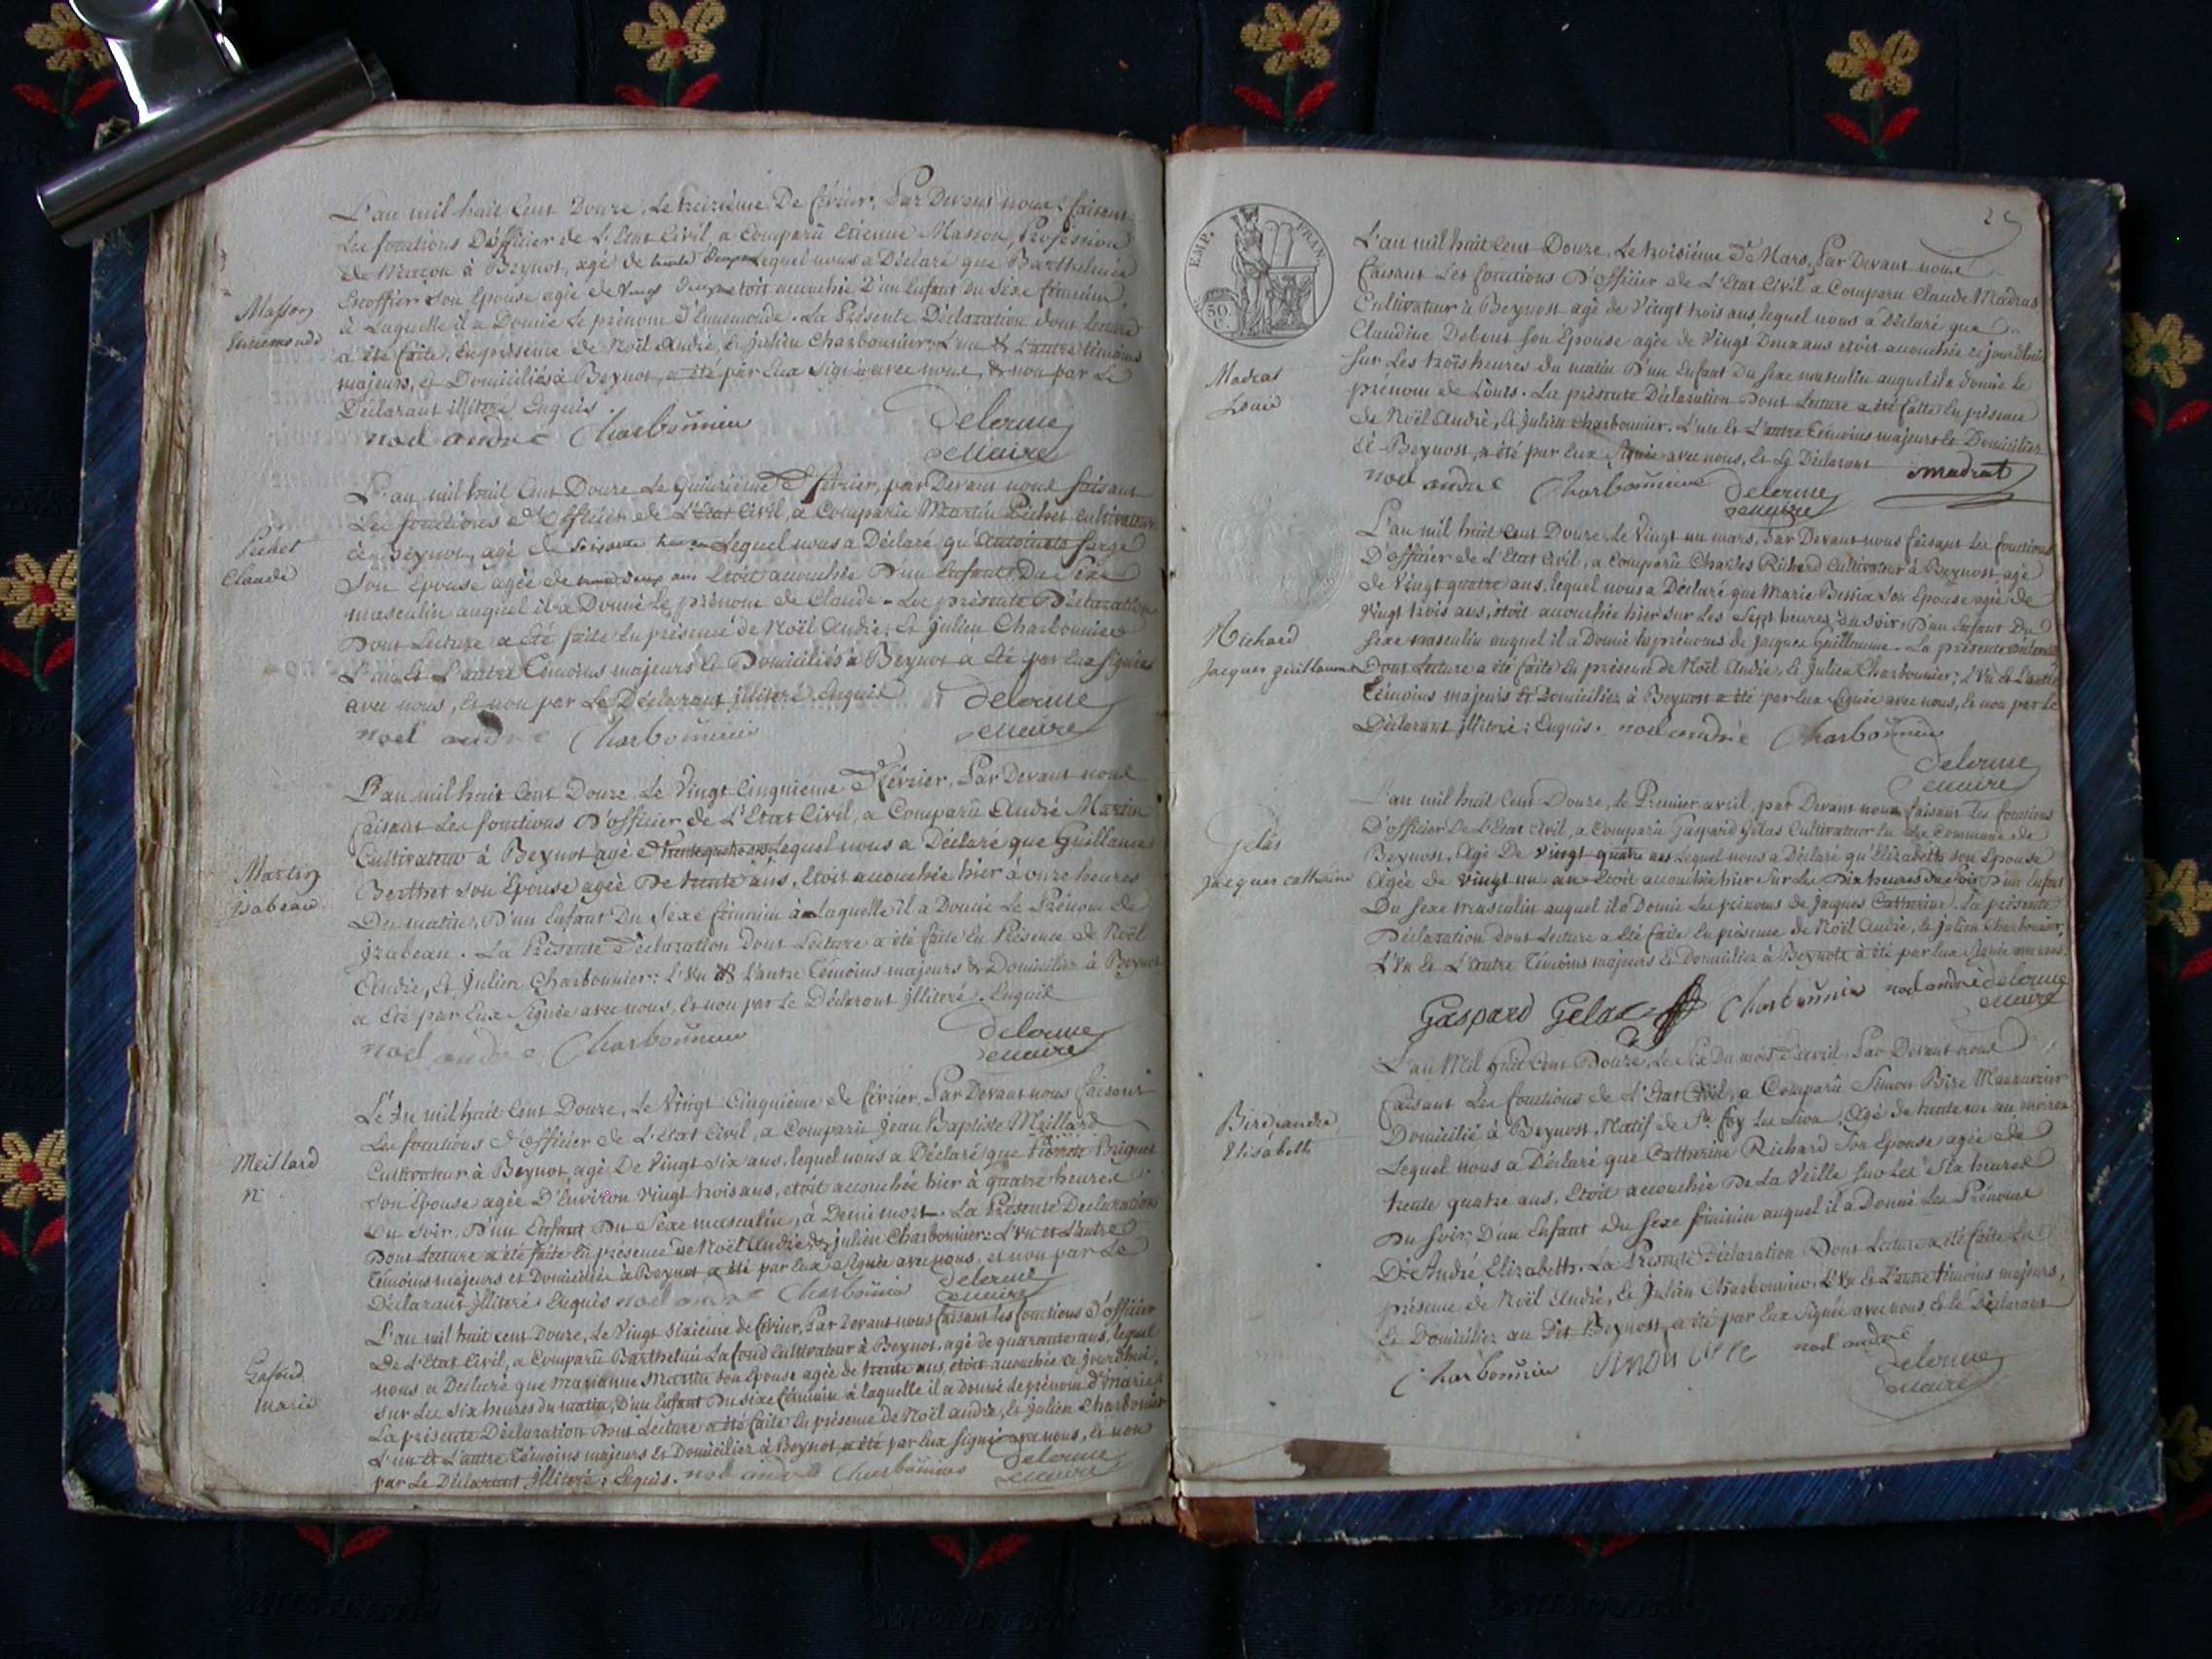 L'an mil huit Cent Douze, Le treizième De février, Par Devant nous faisant
Les fonctions D'officier de L'Etat Civil, a Comparü Etienne Masson, Profession
de Maçon à Beynot, agé de trente Lequel nous a Déclaré que Barthelmie
Escoffier son Epouse agée de vingt étoit accouchée D'un Enfant Du Sexe féminin,
à Laquelle il a Donné Le prénom D'Ennemonde. La Présente Déclaration dont lecture
a été faite, En présence de Noël André, Et Julien Charbonnier, L'un & L'autre témoins
majeurs, Et Domiciliés à Beynot, a été par Eux signée avec nous, & non par Le
Déclarant illitéré Enquis.
Masson
Ennemonde
noel andre Charbonnier Delorme
Maire
L'an mil huit Cent Douze Le Quinzième De février, par Devant nous faisant
Les fonctions d'Officier de L'Etat Civil, a Comparü Martin Pichet cultivateur
à Beynot, agé de Soixante Lequel nous a Déclaré qu'Antoinette farge
Son Epouse agée de ans Etoit accouchée D'un Enfant Du Sexe
masculin auquel il a Donné Le prénom de Claude. La présente Déclaration
Dont Lecture a Eté faite En présence de Noël André, Et Julien Charbonnier
L'un Et L'autre Témoins majeurs Et Domiciliés à Beynot a Eté par Eux signée
avec nous, Et non par Le Déclarant illitéré Enquis
Pichet
Claude
noel andre Charbonnier Delorme
Maire
L'an mil huit Cent Douze, Le Vingt Cinquième De février, Par Devant nous
faisant Les fonctions D'officier de L'Etat Civil, a Comparü André Martin
Cultivateur à Beynot agé de trente quatre ans, Lequel nous a Déclaré que Guillaume
Berthet son Epouse agée De trente ans, Etoit accouchée hier à onze heures
Du matin, D'un Enfant Du Sexe féminin à Laquelle il a Donné Le Prénom de
Jzabeau. La Présente Déclaration dont Lecture a été faite En Présence de Noël
André, Et Julien Charbonnier: L'un & L'autre Témoins majeurs & Domiciliez à Beynot
a Eté par Eux Signée avec nous, Et non par Le Déclarant illitéré. Enquis
Martin
jsabeau
noel andre Charbonnier Delorme
Maire
L'An mil huit Cent Douze, Le Vingt Cinquième de février, Par Devant nous faisant
Les fonctions d'officier de L'Etat Civil, a Comparü Jean Baptiste Meillard
Cultivateur à Beynot, agé De Vingt Six ans, lequel nous a Déclaré que
son Epouse agée D'Environ Vingt trois ans, étoit accouchée hier à quatre heures
Du Soir, D'un Enfant Du Sexe masculin, à Demi mort. La Présente Déclaration
Dont Lecture a été faite En présence de Noël André & Julien Charbonnier: L'Un et L'autre
Témoins majeurs et Domiciliés à Beynot a été par Eux signée avec nous, et non par Le
Déclarant illitéré Enquis noel andre Charbonnier Delorme
Maire
Meillard
n.
L'an mil huit cent Douze, Le Vingt sixième de février, Par Devant nous faisant les fonctions d'officier
De L'Etat Civil, a Comparü Barthelmi Lafond Cultivateur à Beynot, agé de quarante ans, lequel
nous a Déclaré que Marianne Martin son Epouse agée de trente ans, étoit accouchée ce jourd'hui,
sur Les six heures du matin, D'un Enfant Du sexe féminin à laquelle il a donné Le prénom De Marie
La présente Déclaration Dont Lecture a été faite En présence de Noël André, Et Julien Charbonnier
L'un Et L'autre Témoins majeurs Et Domiciliez à Beynot, a été par Eux signée avec nous, Et non
par Le Déclarant illitéré; Enquis. noel andre Charbonnier Delorme
Maire
Lafond
marie
25
EMP. FRAN.
50
C.
L'an mil huit Cent Douze, Le troisième De Mars, Par Devant nous
faisant Les fonctions D'officier de L'Etat Civil a Comparu Claude Madras
Cultivateur à Beynost agé de Vingt trois ans, lequel nous a Déclaré que
Claudine Debout son Epouse agée de Vingt Deux ans étoit accouchée ce jourd'hui
sur Les trois heures du matin D'un Enfant Du sexe masculin auquel il a donné Le
prénom de Louis. La présente Déclaration Dont Lecture a été faite En présence
de Noël André, Et Julien Charbonnier. L'un Et L'autre Témoins majeurs Et Domiciliez
à Beynost, a été par Eux Signée avec nous, Et Le Déclarant
Madras
Louis
noel andre Charbonnier Delorme madrat
Maire
L'an mil huit Cent Douze, Le Vingt un mars, Par Devant nous faisant Les fonctions
D'officier de L'Etat Civil, a Comparü Charles Richard Cultivateur à Beynost, agé
de Vingt quatre ans, lequel nous a Déclaré que Marie son Epouse agée de
Vingt trois ans, étoit accouchée hier sur Les Sept heures du soir, D'un Enfant Du
sexe masculin auquel il a Donné les prénoms de Jacques Guillaume. La présente
Dont Lecture a été faite En présence de Noël André, Et Julien Charbonnier; L'Un Et L'autre
Témoins majeurs Et Domiciliez à Beynost a été par Eux signée avec nous, Et non par Le
Déclarant illitéré; Enquis. noel andré Charbonnier
Delorme
Maire
Richard
Jacques guillaume
L'an mil huit Cent Douze, le Premier avril, par Devant nous faisant Les fonctions
D'officier De L'Etat Civil, a Comparü Gaspard Gélas Cultivateur En La Commune de
Beynost, Agé De Vingt quatre ans Lequel nous a Déclaré qu'Elizabeth son Epouse
Agée de Vingt un an Etoit accouchée hier Sur Les Dix heures du Soir D'un Enfant
Du sexe masculin auquel il a Donné Les prénoms de Jacques Catherine. La présente
Déclaration dont Lecture a Eté faite En présence de Noël André, Et Julien Charbonnier,
L'Un Et L'autre Témoins majeurs Et Domiciliez à Beynost a été par Eux Signée avec nous.
Gelas
Jacques catherine
Gaspard Gelas Charbonnier noel andré Delorme
Maire
L'an Mil huit Cent Douze, Le Six Du mois D'avril, Par Devant nous
faisant Les fonctions de L'Etat Civil, a Comparü Simon Bire
Domicilié à Beynost, Natif de Ste foy Les Lion, Agé de trente un an environ
Lequel nous a Déclaré que Catherine Richard Son Epouse agée de
trente quatre ans, Etoit accouchée De La Veille sur Les Six heures
Du Soir, D'un Enfant Du Sexe féminin auquel il a Donné Les Prénoms
D'André Elizabeth. La Présente Déclaration Dont Lecture a été faite En
présence de Noël André, Et Julien Charbonnier, L'Un Et L'autre témoins majeurs,
Et Domiciliez au Dit Beynost, a été par Eux Signée avec nous Et le Déclarant
Elisabeth
Charbonnier noel andré
Delorme
Maire